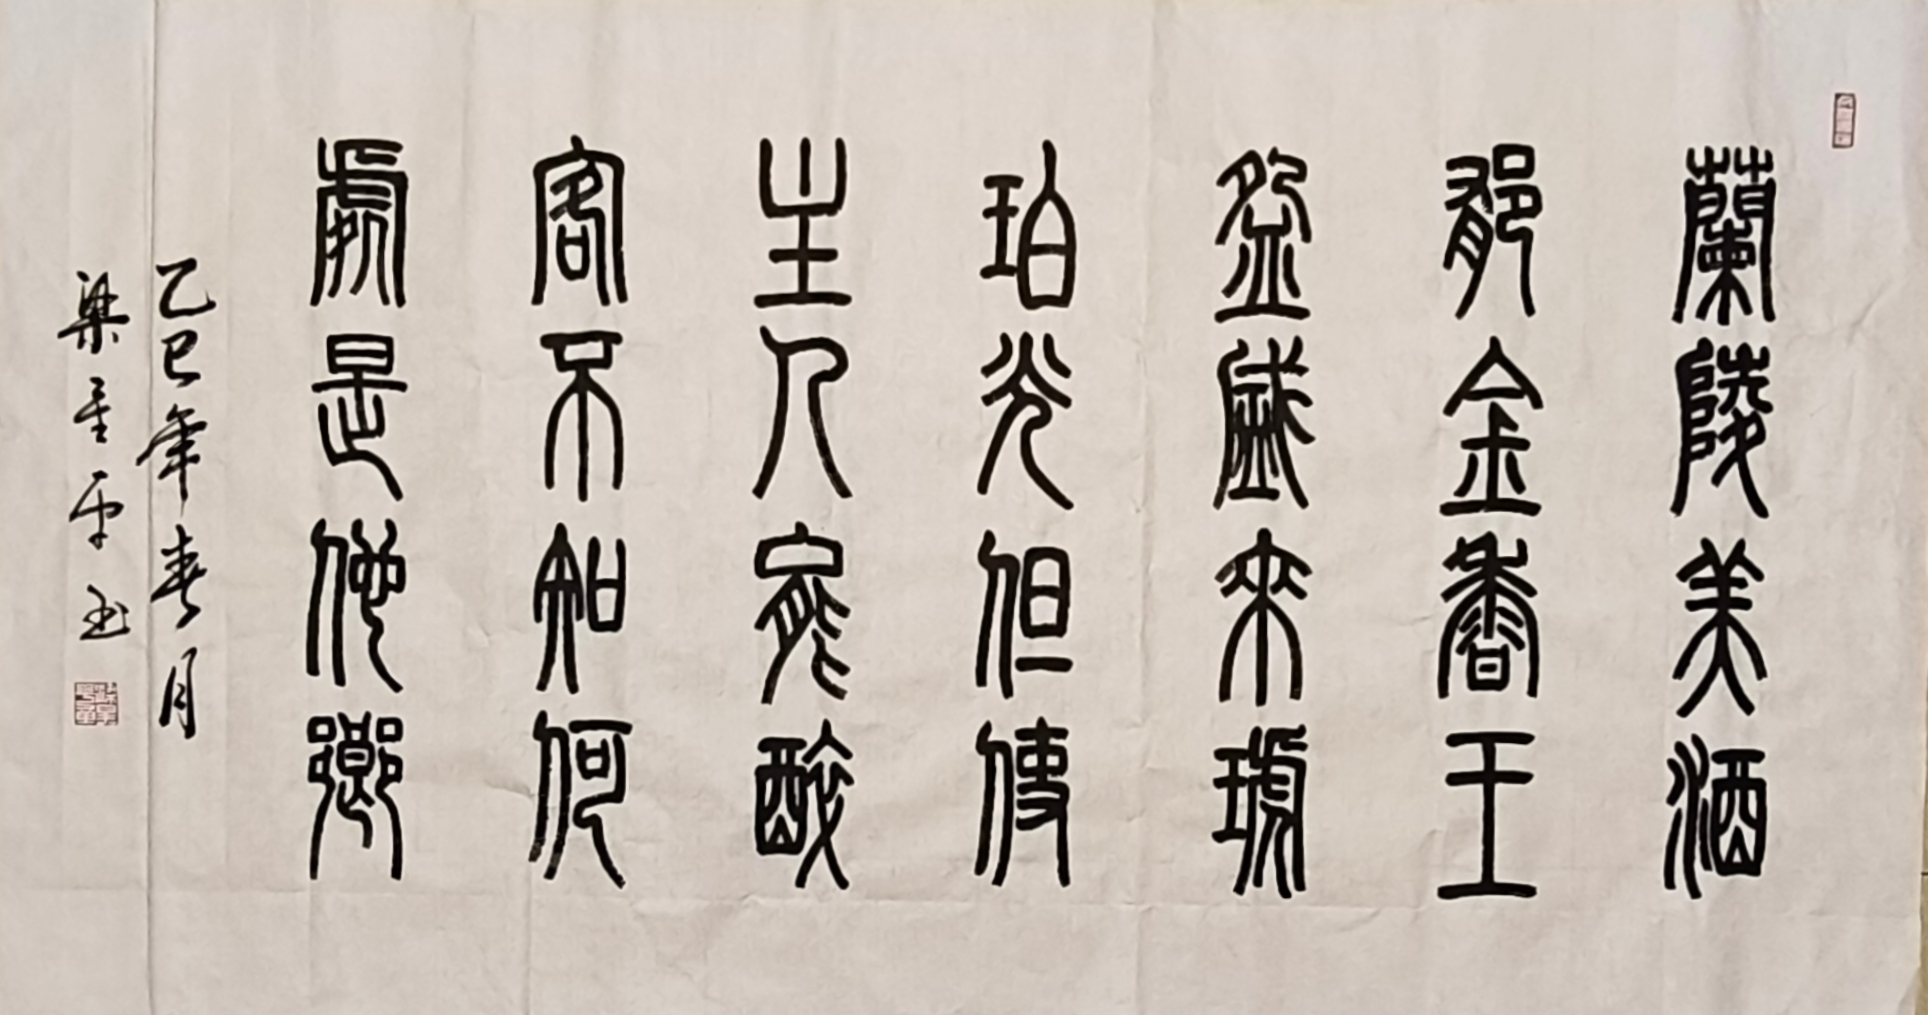 蘭陵美酒
郁金香王
盌盛來琥
珀光但使
主人能醉
客不知何
處是他鄉
乙巳年春月
梁平书